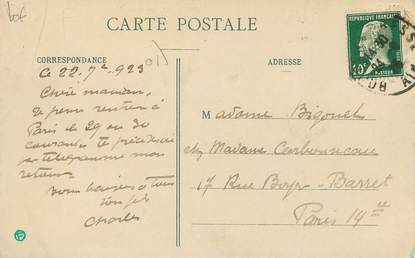 CARTE POSTALE
CORRESPONDANCE
ADRESSE
RÉPUBLIQUE FRANÇAISE
10c
PASTEUR
Ce 22. 7bre 923
Chère maman,
Je pense rentrer à
Paris le 29 ou 30
courant. te préciserai
par télégramme mon
retour.
Bons baisers à tous
ton fils
Charles
Madame Bigouet
chez Madame Carbonneau
17 Rue Boyer-Barret
Paris 14e